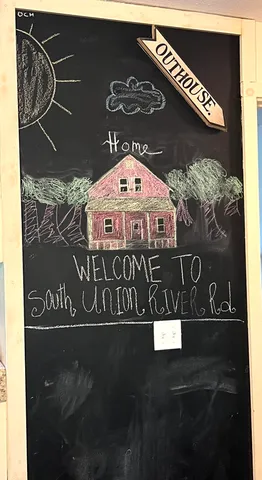 OCM
OUTHOUSE.
Home
WELCOME TO
South UNION RIVER Rd